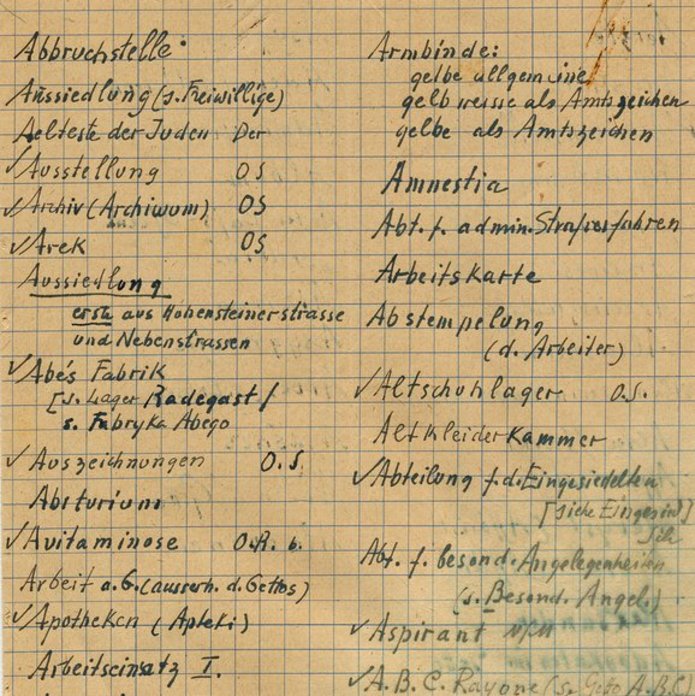 Abbruchstelle
Aussiedlung (s. Freiwillige)
Aelteste der Juden Der
✓Ausstellung OS
✓Archiv (Archiwum) OS
✓Arek OS
Aussiedlung
erste aus Hohensteinerstrasse
und Nebenstrassen
✓Abés Fabrik
[s. Lager Radegast/
s. Fabryka Abego
✓Auszeichnungen O.S.
Abiturium
✓Avitaminose O.R. b.
Arbeit a.G. (ausserh. d. Gettos)
✓Apotheken (Apteki)
Arbeitseinsatz I.
Armbinde:
gelbe allgemeine
gelb weisse als Amtszeichen
gelbe als Amtszeichen
Amnestia
Abt. f. admin. Strafverfahren
Arbeitskarte
Abstempelung
(d. Arbeiter)
✓Altschuhlager O.S.
Altkleiderkammer
✓Abteilung f.d. Eingesiedelten
[siehe Eingesied]
Abt. f. besond. Angelegenheiten
(s. Besond. Angel.)
✓Aspirant
✓A.B.C. Rayone (s. Geto A.B.C)